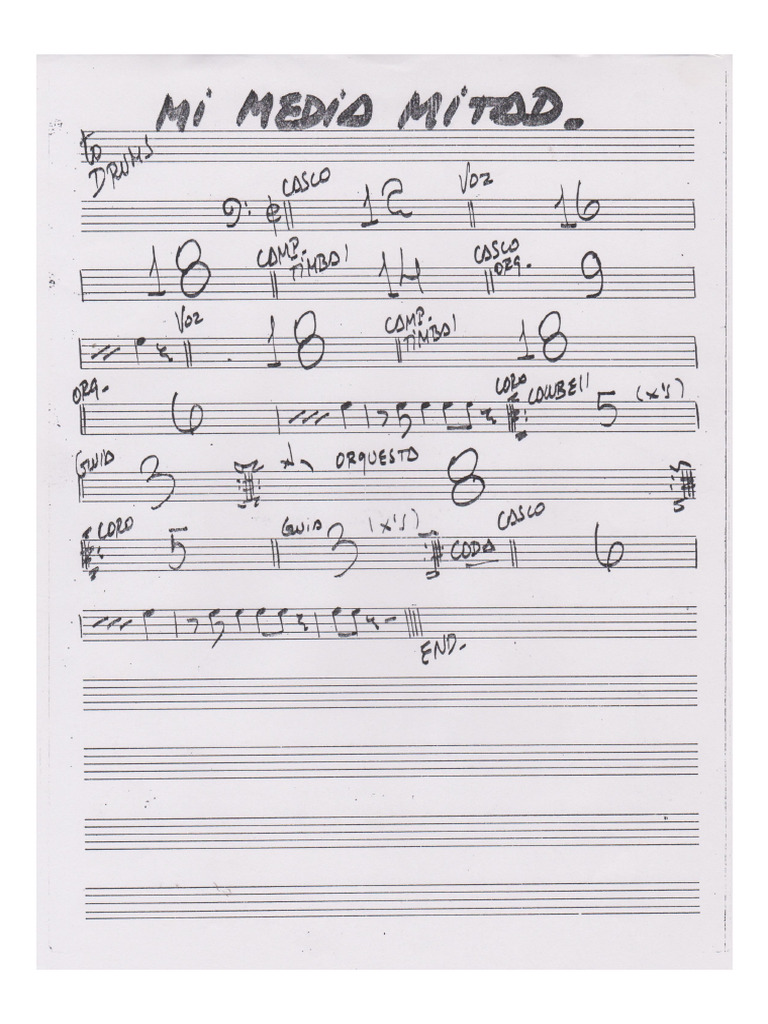 MI MEDIA MITAD.
to DRUMS
CASCO 12 VOZ 16
18 CAMP. TIMBAL 14 CASCO ORQ. 9
VOZ 18 CAMP. TIMBAL 18
ORQ. 6 CORO COWBELL 5 (X'S)
GUIA 3 ORQUESTA 8
CORO 5 GUIA 3 (X'S) CODA CASCO 6
END.